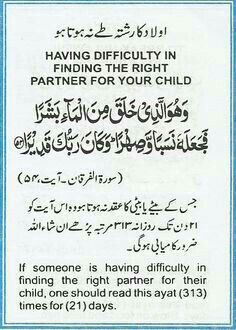 اولاد کا رشتہ طے نہ ہوتا ہو
HAVING DIFFICULTY IN
FINDING THE RIGHT
PARTNER FOR YOUR CHILD
وَهُوَ الَّذِىْ خَلَقَ مِنَ الْمَآءِ بَشَرًا
فَجَعَلَهٗ نَسَبًا وَّصِهْرًا ؕ وَكَانَ رَبُّكَ قَدِيْرًا ﴿۵۴﴾
(سورۃ الفرقان - آیت، ۵۴)
جس کے بیٹے یا بیٹی کا عقد نہ ہوتا ہو وہ اس آیت کو
۲۱ دن تک روزانہ ۳۱۳ مرتبہ پڑھے ان شاء اللہ
ضرور کامیابی ہوگی۔
If someone is having difficulty in
finding the right partner for their
child, one should read this ayat (313)
times for (21) days.